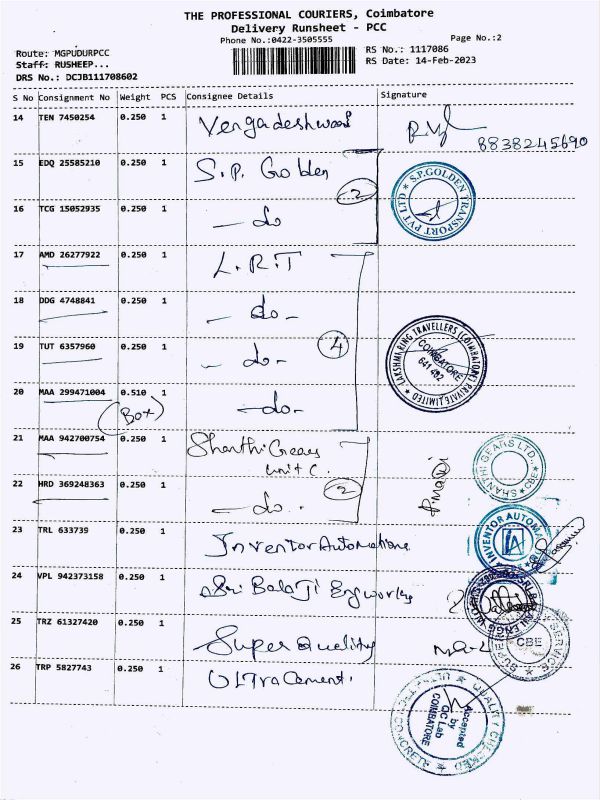 THE PROFESSIONAL COURIERS, Coimbatore
Delivery Runsheet - PCC
Phone No.:0422-3505555
Page No.:2
Route: MGPUDURPCC
Staff: RUSHEEP...
DRS No.: DCJB111708602
RS No.: 1117086
RS Date: 14-Feb-2023
S No Consignment No Weight PCS Consignee Details Signature
14 TEN 7450254 0.250 1
8838245690
15 EDQ 25585210 0.250 1 S.P. Golden
2
S.P.GOLDEN TRANSPORT PVT LTD
16 TCG 15052935 0.250 1 - do
17 AMD 26277922 0.250 1 L.R.T
18 DDG 4748841 0.250 1 - do -
19 TUT 6357960 0.250 1 - do -
4
LAKSHMI RING TRAVELLERS (COIMBATORE) PRIVATE LIMITED
COIMBATORE
641 402
20 MAA 299471004 0.510 1 - do -
(Box)
21 MAA 942700754 0.250 1 Shanthi Gears
unit C.
SHANTHI GEARS LTD.
CBE
22 HRD 369248363 0.250 1 - do -
2
23 TRL 633739 0.250 1 Inventor Automations
INVENTOR AUTOMA
24 VPL 942373158 0.250 1 Sri Balaji Eng works
25 TRZ 61327420 0.250 1 Super Quality
CBE
26 TRP 5827743 0.250 1 Ultra Cement.
Accepted
by
QC Lab
COIMBATORE